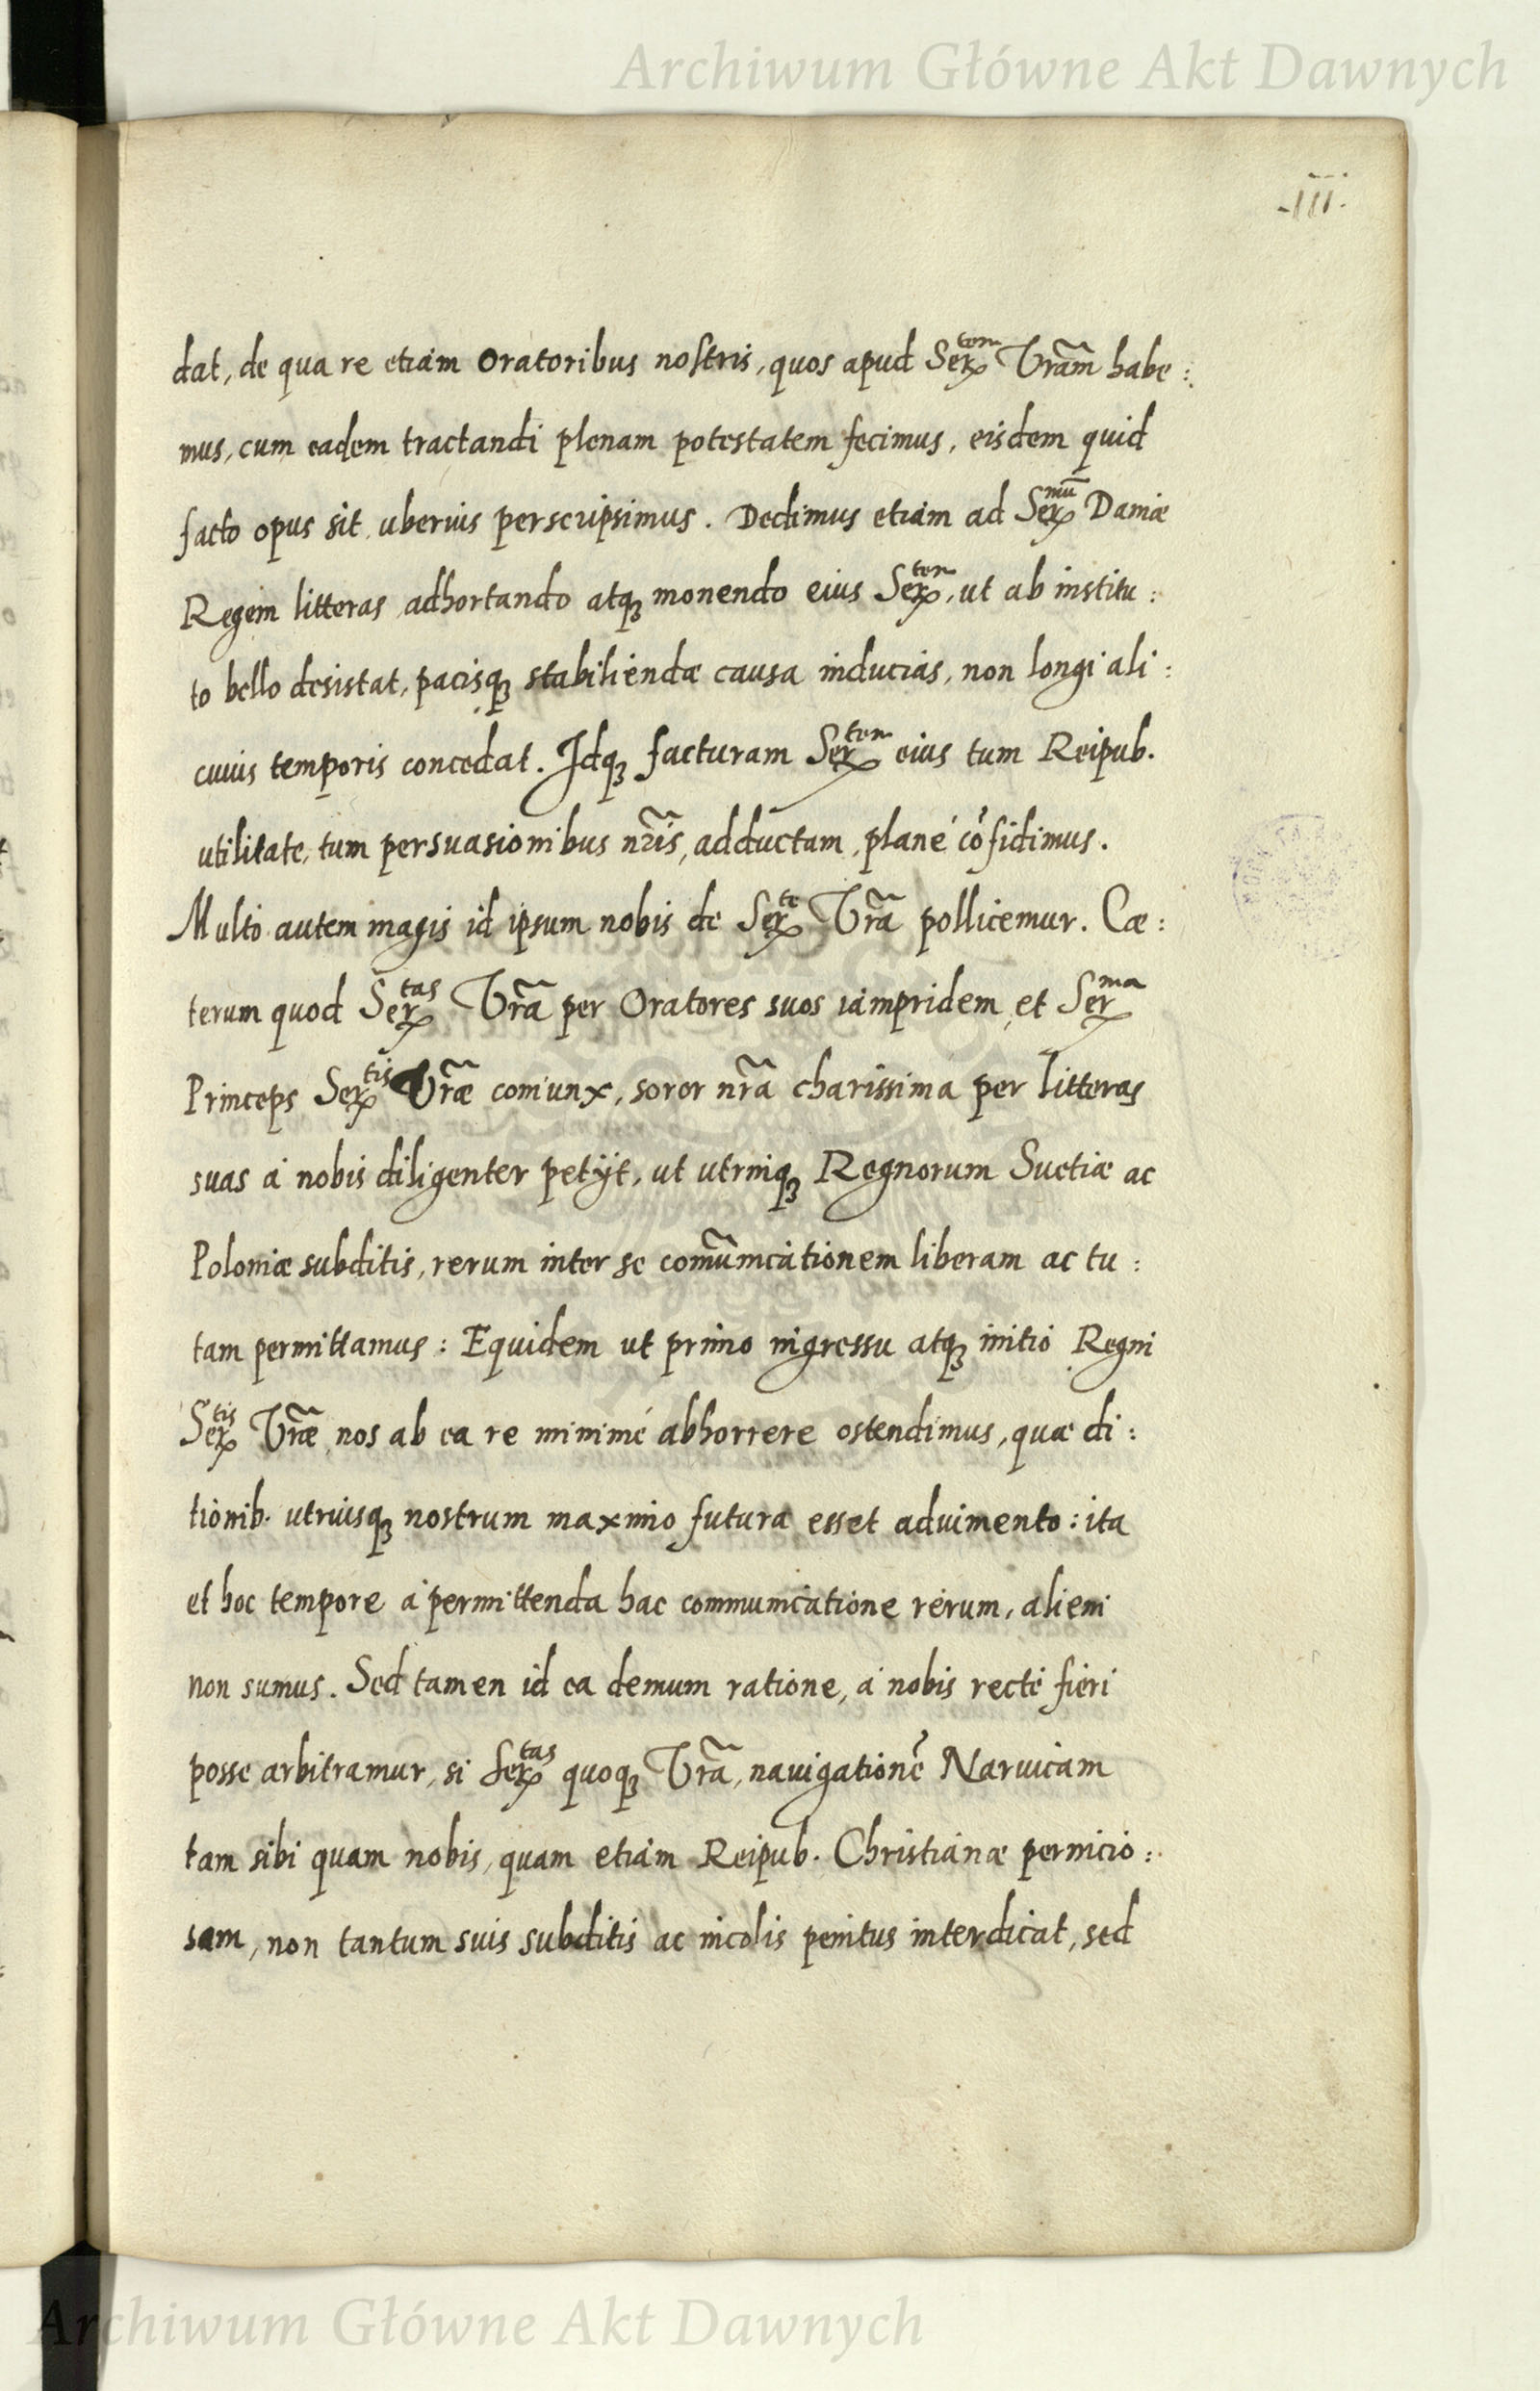 Archiwum Główne Akt Dawnych
-III-
dat, de qua re etiam Oratoribus nostris, quos apud Ser^tem Vrãm habe:
mus, cum eadem tractandi plenam potestatem fecimus, eisdem quid
facto opus sit, uberius perscripsimus. Dedimus etiam ad Ser^mũ Daniæ
Regem litteras adhortando atq3 monendo eius Ser^tem, ut ab institu:
to bello desistat, pacisq3 stabiliendæ causa inducias, non longi ali:
cuius temporis concedat. Idq3 facturam Ser^tem eius tum Reipub.
utilitate, tum persuasionibus nr̃is, adductam, planè cõfidimus.
Multo autem magis id ipsum nobis de Ser^te Vrã pollicemur. Cæ:
terum quod Ser^tas Vrã per Oratores suos iampridem, et Ser^ma
Princeps Ser^tis Vræ̃ coniunx, soror nr̃a charissima per litteras
suas à nobis diligenter petÿt, ut utriusq3 Regnorum Suetiæ ac
Poloniæ subditis, rerum inter se com̃unicationem liberam ac tu:
tam permittamus: Equidem ut primo ingressu atq3 initio Regni
Ser^tis Vræ̃, nos ab ea re minimè abhorrere ostendimus, quæ di:
tionib. utriusq3 nostrum maximo futura esset adiumento: ita
et hoc tempore à permittenda hac communicatione rerum, alieni
non sumus. Sed tamen id ea demum ratione, à nobis rectè fieri
posse arbitramur, si Ser^tas quoq3 Vrã, nauigationẽ Naruicam
tam sibi quam nobis, quam etiam Reipub. Christianæ pernicio:
sam, non tantum suis subditis ac incolis penitus interdicat, sed
Archiwum Główne Akt Dawnych